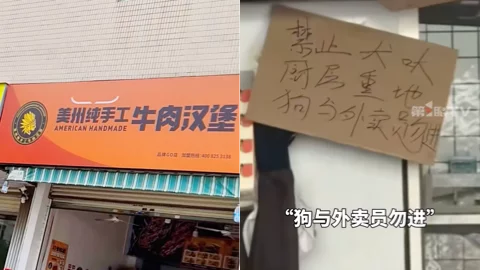 美州纯手工
牛肉汉堡
AMERICAN HANDMADE
禁止犬吠
厨房重地
狗与外卖员勿进
“狗与外卖员勿进”